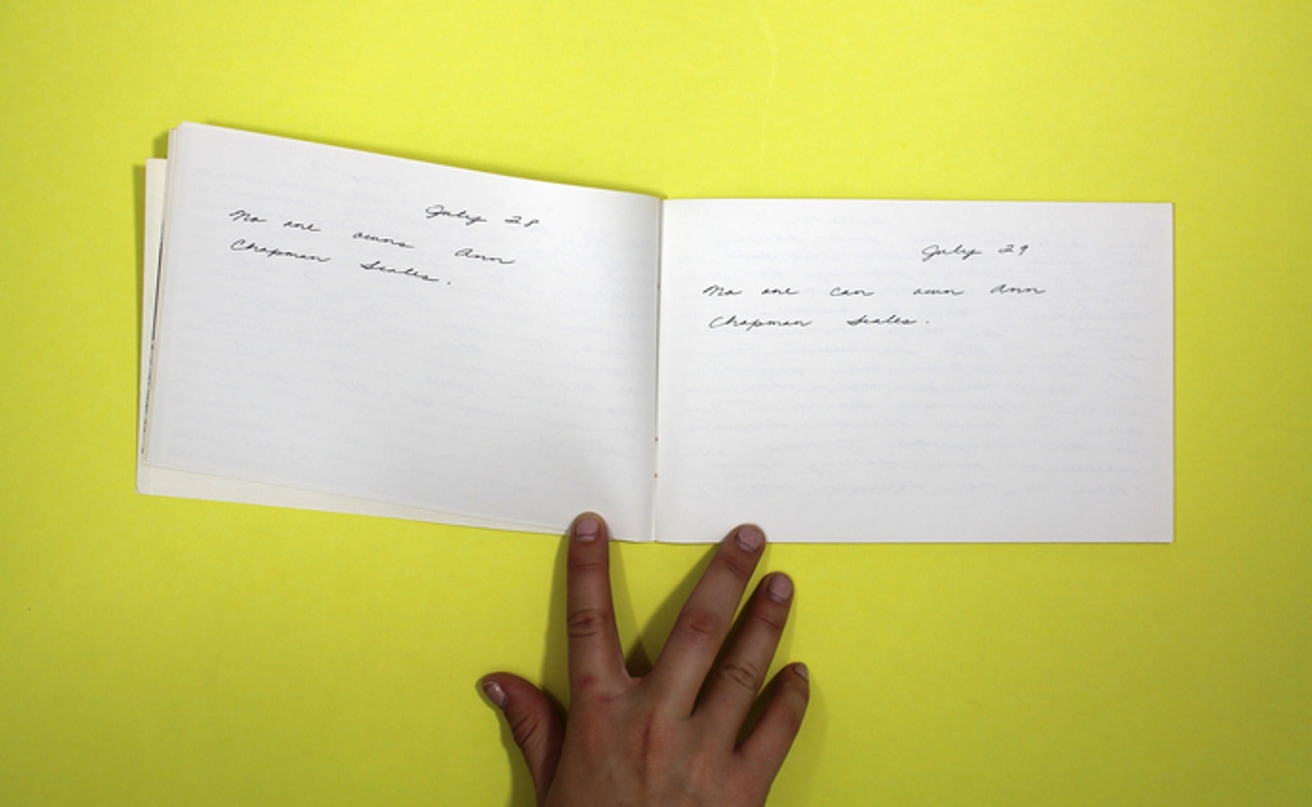 July 28
No one owns Ann
Chapman Scales.
July 29
No one can own Ann
Chapman Scales.